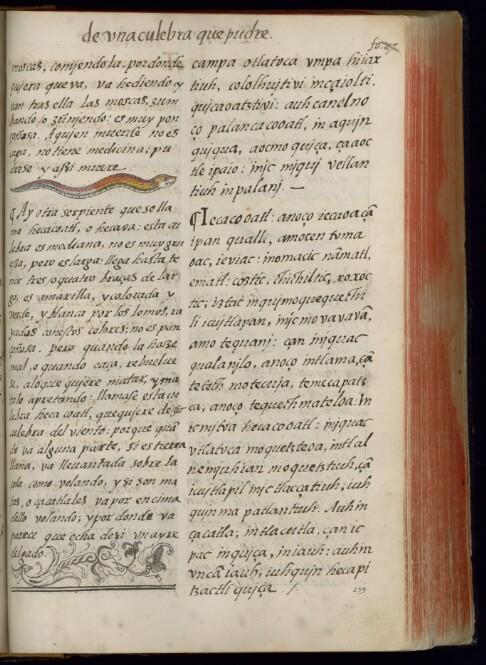 de vna culebra que pudre.
fo. 87
moscas, comjendo la, por donde
qujera que va, va hediendo y
van tras ella las moscas, zum
bando lo zũnjendo: es muy pon
çoñosa. Aquien muerde no es
capa, no tiene medicina: pu
drese y assi muere.
¶ Ay otra serpiente que se lla
ma hecacoatl, o hecaua: esta cu
lebra es mediana, no es muy gru
essa, pero es larga: llega hasta te
njr tres, o quatro braças de lar
go, es amarilla, y colorada y
verde, y blanca por los lomos, ra
yados con estos colores: no es pon
çoñosa. pero quando la hazẽ
mal, o quando caça, rebuelue
se, a lo que qujere matar, y ma
talo apretando: llamase esta cu
lebra heca coatl, que qujere dezir
culebra del viento: porque quã
do va alguna parte, si es tierra
llana, va leuantada sobre la
cola como volando, y si son ma
tas, o çacatlales va por encima
dello volando; y por donde va
parece que echa de si vn ayre
delgado.
campa otlatvca vmpa hiiax
tiuh, cololhujtivi inçaiolti.
qujcaoatztivi: auh canel no
ço palanca cooatl, in aqujn
qujqua, aocmo qujça, ça aoc
tle ipaio: injc mjquj vellan
tiuh in palanj. —
¶ Iecacooatl: anoço iecaoa çã
ipan qualli, amo cen tvma
oac, ieviac: in omacic nãmatl,
ematl: coztic, chichiltic, xoxoc
tic, iztac inqujmoquequethi
li icujtlapan, injc movavavã,
amo tequanj: çan injquac
qualanjlo, anoço in tlama, çã
tetech motecuja, temecapatz
ca, anoço tequechmateloa: In
ic mjtva hecacooatl: injquac
vtlatvca moquetzteoa, in tlal
nemjuhian moquetztiuh, çã
icujtlapil injc tlacçatiuh; iuh
qujn ma patlantiuh. Auh in
çacatla; in tlacutla, çan ic
pac in qujça, in iauh: auh in
vncã iauh, iuhqujn heca pi
tzactli qujça. /
239